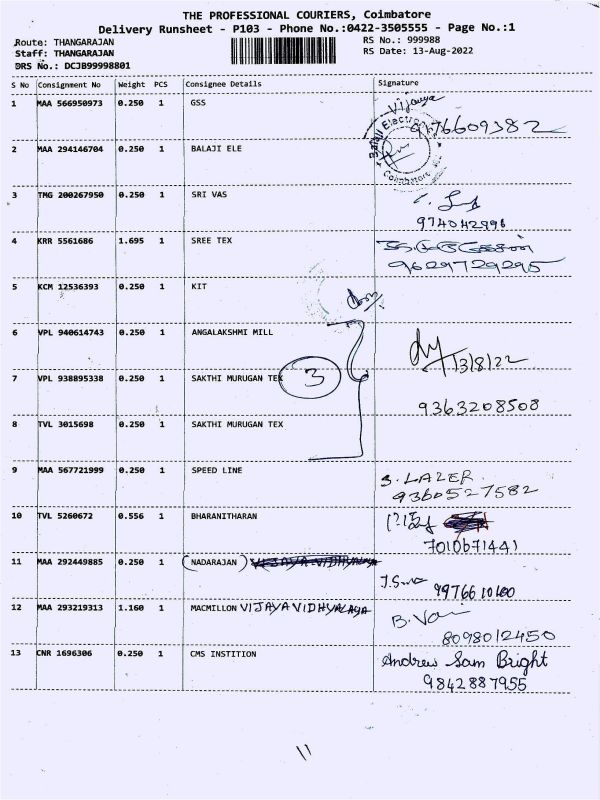 THE PROFESSIONAL COURIERS, Coimbatore
Delivery Runsheet - P103 - Phone No.:0422-3505555 - Page No.:1
Route: THANGARAJAN RS No.: 999988
Staff: THANGARAJAN RS Date: 13-Aug-2022
DRS No.: DCJB99998801
S No Consignment No Weight PCS Consignee Details Signature
1 MAA 566950973 0.250 1 GSS Vijaya
9176609382
2 MAA 294146704 0.250 1 BALAJI ELE
Balaji Electr
Coimbatore
3 TMG 200267950 0.250 1 SRI VAS
974042996
4 KRR 5561686 1.695 1 SREE TEX
9629729295
5 KCM 12536393 0.250 1 KIT
6 VPL 940614743 0.250 1 ANGALAKSHMI MILL
13/8/22
7 VPL 938895338 0.250 1 SAKTHI MURUGAN TEX 3
9363208508
8 TVL 3015698 0.250 1 SAKTHI MURUGAN TEX
9 MAA 567721999 0.250 1 SPEED LINE S. LAZER
9360527582
10 TVL 5260672 0.556 1 BHARANITHARAN
7010671441
11 MAA 292449885 0.250 1 (NADARAJAN)
9976610160
12 MAA 293219313 1.160 1 MACMILLON VIJAYAVIDHYALAYA
8098012450
13 CNR 1696306 0.250 1 CMS INSTITION Andrew Sam Bright
9842887955
11